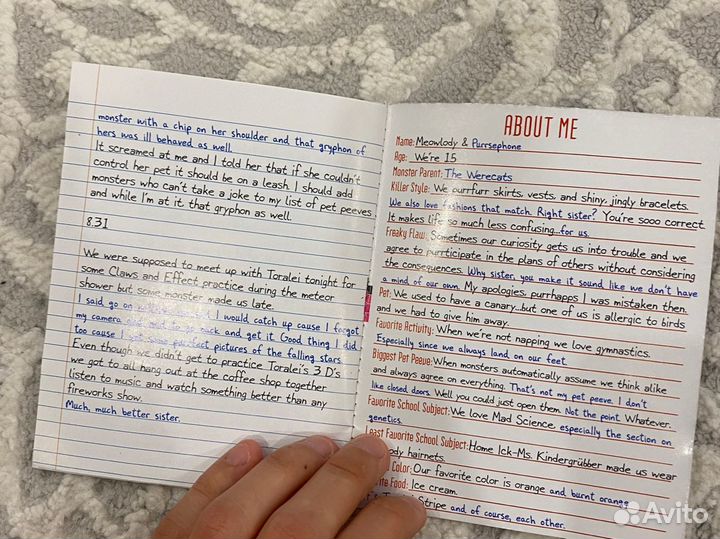 monster with a chip on her shoulder and that gryphon of
hers was ill behaved as well.
It screamed at me and I told her that if she couldn't
control her pet it should be on a leash. I should add
monsters who can't take a joke to my list of pet peeves
and while I'm at it, that gryphon as well.
8.31
We were supposed to meet up with Toralei tonight for
some Claws and Effect practice during the meteor
shower but some monster made us late.
I said go on I would catch up cause I forgot
my camera and had to go back and get it. Good thing I did
too cause I got some purrfect pictures of the falling stars.
Even though we didn't get to practice Toralei's 3 D's
we got to all hang out at the coffee shop together
listen to music and watch something better than any
fireworks show.
Much, much better sister.
ABOUT ME
Name: Meowlody & Purrsephone
Age: We're 15
Monster Parent: The Werecats
Killer Style: We purrfurr skirts, vests, and shiny, jingly bracelets.
We also love fashions that match. Right sister? You're sooo correct.
It makes life so much less confusing...for us.
Freaky Flaw: Sometimes our curiosity gets us into trouble and we
agree to purrticipate in the plans of others without considering
the consequences. Why sister, you make it sound like we don't have
a mind of our own. My apologies, purrhapps I was mistaken then.
Pet: We used to have a canary...but one of us is allergic to birds
and we had to give him away.
Favorite Activity: When we're not napping we love gymnastics.
Especially since we always land on our feet.
Biggest Pet Peeve: When monsters automatically assume we think alike
and always agree on everything. That's not my pet peeve. I don't
like closed doors. Well you could just open them. Not the point. Whatever.
Favorite School Subject: We love Mad Science, especially the section on
genetics.
Least Favorite School Subject: Home Ick-Ms. Kindergrübber made us wear
body hairnets.
Color: Our favorite color is orange and burnt orange.
Food: Ice cream.
Stripe and of course, each other.
Avito